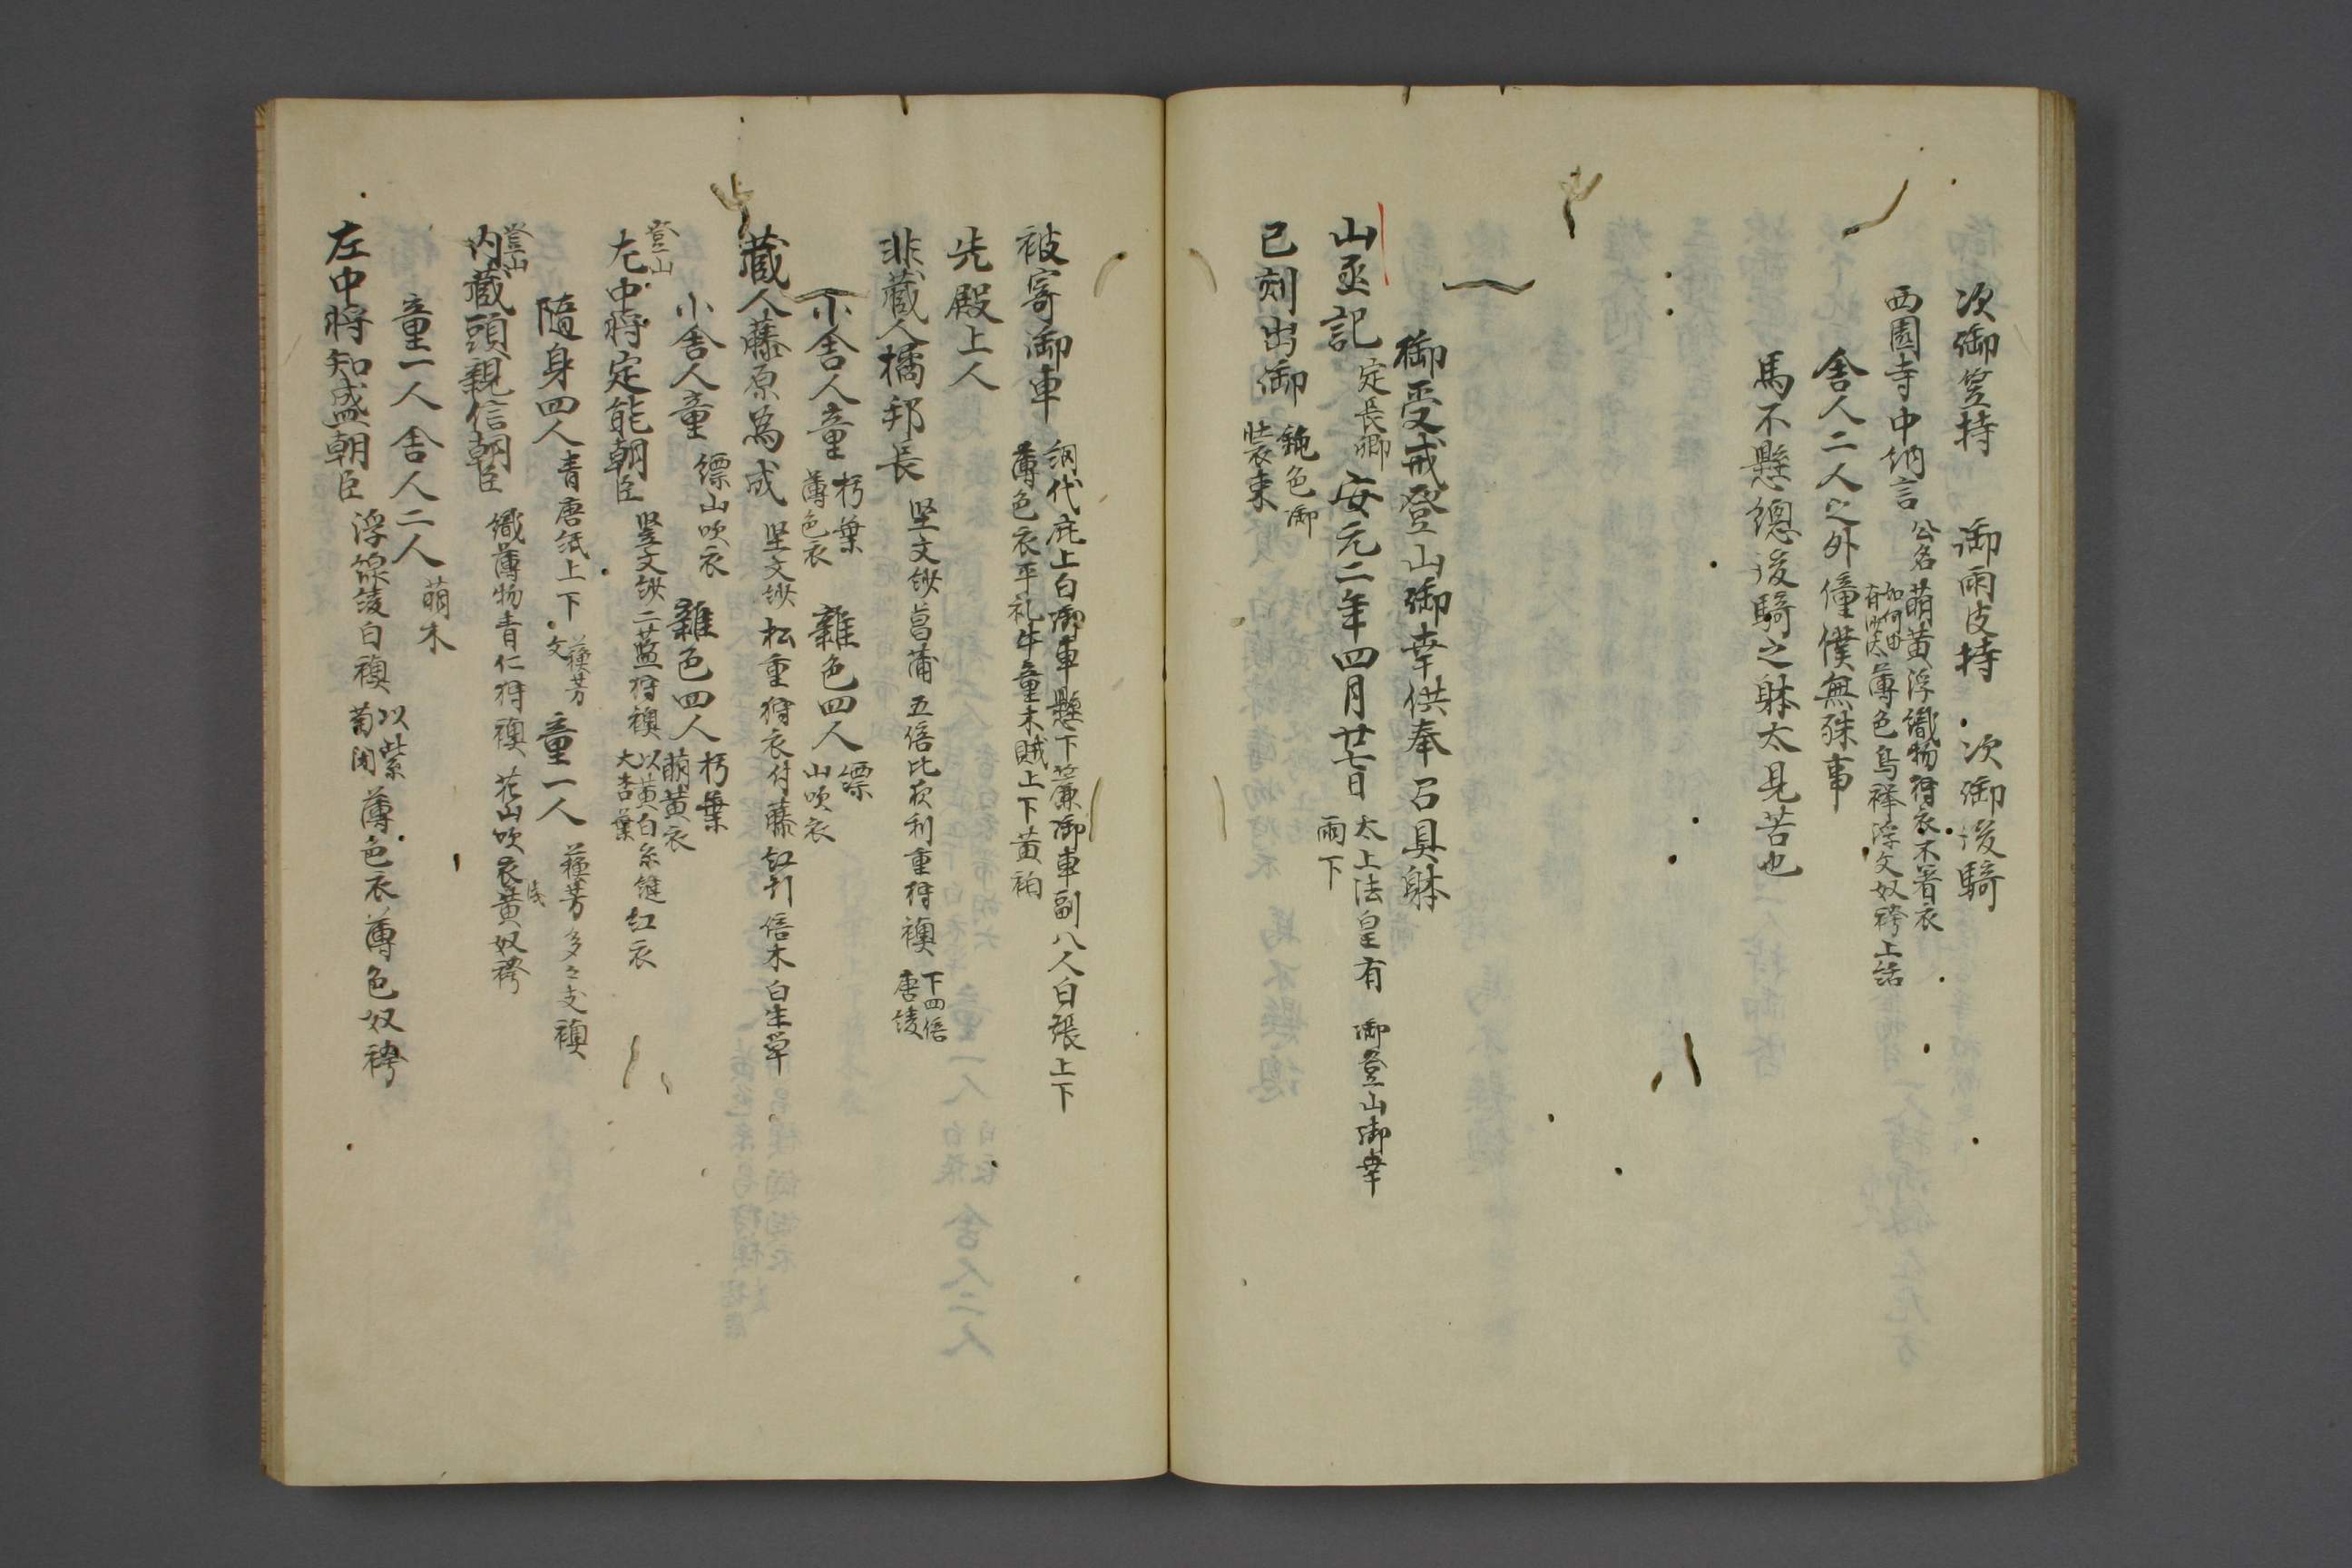 次御笠持 御雨皮持 次御後騎
西園寺中納言 公名 萌黄浮織物狩衣不着衣
如何由
有沙汰 薄色烏襷浮文奴袴上括
舎人二人之外僮僕無殊事
馬不懸總後騎之躰太見苦也
一
御受戒登山御幸供奉召具躰
山丞記 定長卿 安元二年四月廿七日 太上法皇有 御登山御幸
雨下
巳刻出御 鈍色御
装束
被寄御車 網代庇上白御車懸下簾御車副八人白張上下
薄色衣平礼牛童木賊上下黄衵
先殿上人
非蔵人橘邦長 竪文紗菖蒲五倍比衣利重狩襖 下四倍
唐綾
小舎人童 朽葉
薄色衣 雑色四人 縹
山吹衣
蔵人藤原為成 竪文紗松重狩衣付藤紅引倍木白生単
小舎人童 縹山吹衣 雑色四人 朽葉
萌黄衣
登山
左中将定能朝臣 竪文紗二藍狩襖 以黄白糸縫
大杏葉 紅衣
隨身四人 青唐紙上下 蘇芳
文 童一人 蘇芳多々支襖
登山
内蔵頭親信朝臣 織薄物青仁狩襖 花山吹衣浅黄奴袴
童一人舎人二人 萌木
左中将知盛朝臣 浮線綾白襖 以紫
菊閇 薄色衣薄色奴袴